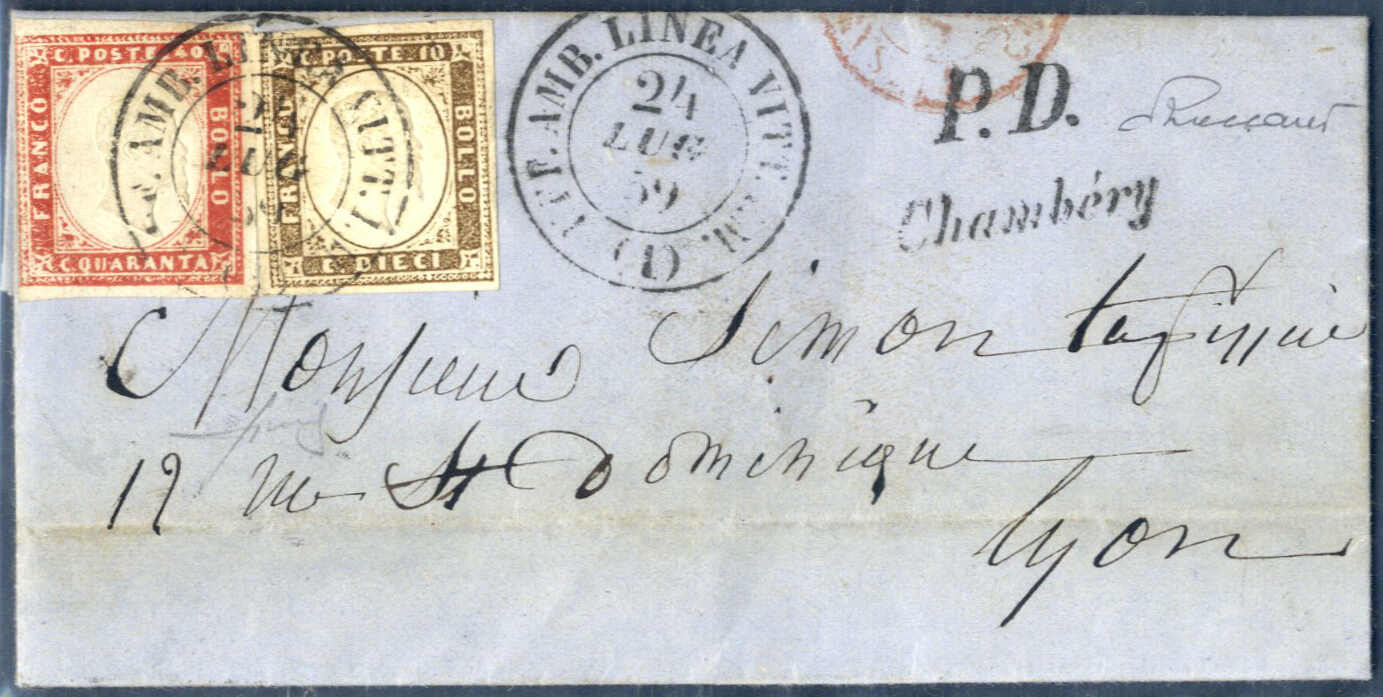 C. POSTE 40
FRANCO
BOLLO
C. QUARANTA
C. POSTE 10
FRANCO
BOLLO
C. DIECI
UFF. AMB. LINEA VITT. EM. (1)
24
LUG
59
UFF. AMB. LINEA VITT. EM. (1)
24
LUG
59
P.D.
Chambéry
Monsieur Simon
12 rue St Dominique
Lyon